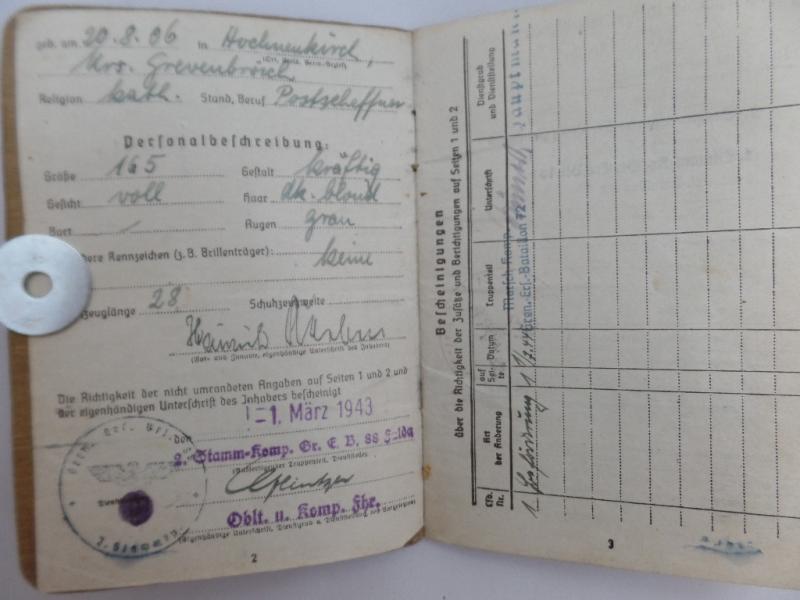 geb. am 20.8.06 in Hochneukirch,
Krs. Grevenbroich
(Ort, Kreis, Verw.-Bezirk)
Religion kath. Stand, Beruf Postschaffner
Personalbeschreibung:
Größe 165 Gestalt kräftig
Gesicht voll Haar dk. blond
Bart / Augen grau
dere Kennzeichen (z. B. Brillenträger): keine
zeuglänge 28 Schuhzeugweite
Heinrich
(Vor- und Zuname, eigenhändige Unterschrift des Inhabers)
Die Richtigkeit der nicht umrandeten Angaben auf Seiten 1 und 2 und
der eigenhändigen Unterschrift des Inhabers bescheinigt
den -1. März 1943
2. Stamm-Komp. Gr. E. B. 88 Fulda
(Ausfertigender Truppenteil, Dienststelle)
Oblt. u. Komp. Fhr.
(Eigenhändige Unterschrift, Dienstgrad u. Dienststellung des Vorgesetzten)
2
Bescheinigungen
über die Richtigkeit der Zusätze und Berichtigungen auf Seiten 1 und 2
Lfd. Nr.
Art der Änderung
auf Seite
Datum
Truppenteil
Unterschrift
Dienstgrad und Dienststellung
1
1
Marsch Komp.
Gren.-Ers.-Bataillon
Hauptmann
3